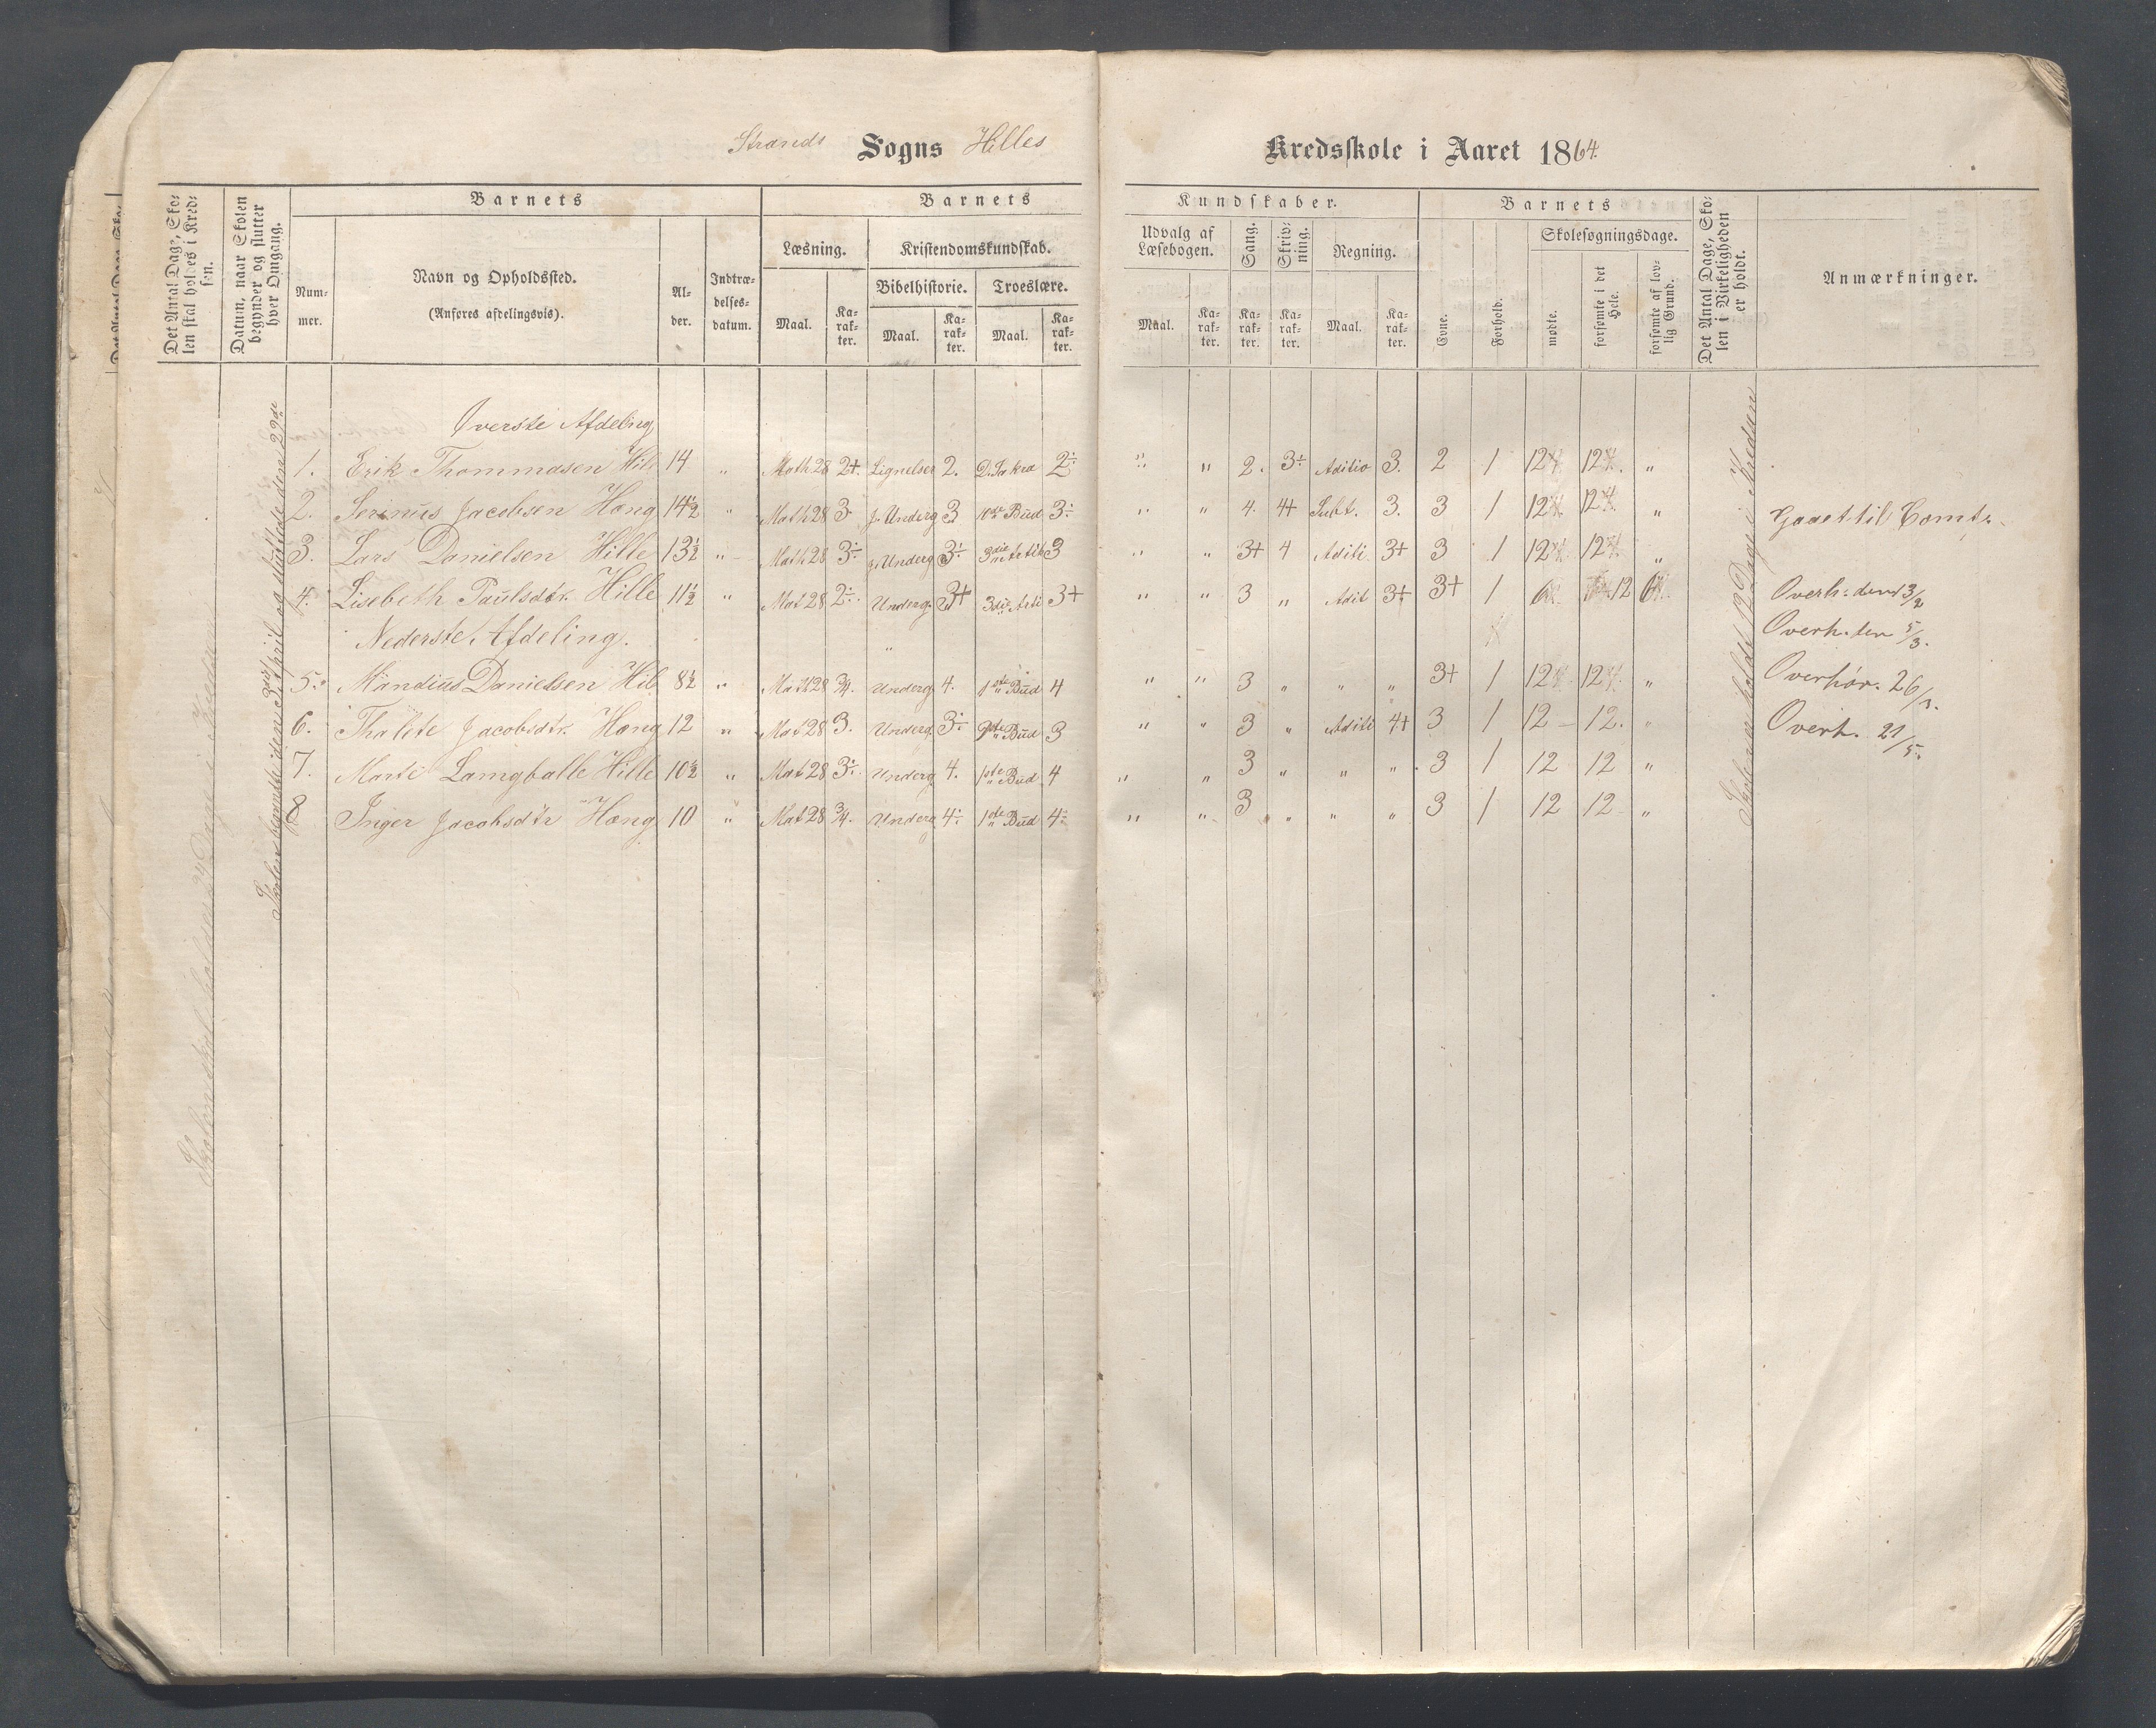 Strands Sogns Hilles Kredsskole i Aaret 1864.
Det Antal Dage, Skolen skal holdes i Kredsen.
Datum, naar Skolen begynder og slutter hver Omgang.
Barnets
Nummer.
Navn og Opholdssted.
(Anføres afdelingsvis).
Alder.
Indtrædelsesdatum.
Barnets Kundskaber.
Læsning.
Maal.
Karakter.
Kristendomskundskab.
Bibelhistorie.
Maal.
Karakter.
Troeslære.
Maal.
Karakter.
Udvalg af Læsebogen.
Maal.
Karakter.
Sang.
Karakter.
Skrivning.
Karakter.
Regning.
Maal.
Karakter.
Barnets
Evne.
Forhold.
Skolesøgningsdage.
mødte.
forsømte i det Hele.
forsømte af lovlig Grund.
Det Antal Dage, Skolen i Virkeligheden er holdt.
Anmærkninger.
Skolen skal holdes 24 Dage i Kredsen
Skolen begyndte den April og sluttede den 29de
Skolen er holdt 12 Dage i Kredsen
Øverste Afdeling
1. Erik Thommasen Hill 14 " Math 28 2+ Lignelser 2. 2÷ " " 2. 3+ Aditio 3. 2 1 12 12 "
2. Serinus Jacobsen Høng 14½ " Math 28 3 J. Underg 3 10de Bud 3÷ " " 4. 4+ Subt. 3. 3 1 12 12 " Gaaet til
3. Lars Danielsen Hille 13½ " Math 28 3÷ J. Underg 3÷ 3die Artik 3 " " 3+ 4 Aditi 3+ 3 1 12 12 "
4. Lisebeth Paulsdtr. Hille 11½ " Mat 28 2÷ Underg. 3+ 3die Arti 3+ " " 3 " Adit 3+ 3+ 1 6 12 6 Overh. den 3/2
Nederste Afdeling. Overh. den 5/3.
5. Mandius Danielsen Hill 8½ " Math 28 3/4. Underg 4. 1ste Bud 4 " " 3 " " " 3+ 1 12 12 " Overhør. 26/3.
6. Thalete Jacobsdtr. Høng 12 " Mat 28 3. Underg. 3÷ Bud 3 " " 3 " Aditi 4+ 3 1 12 12. " Overh. 21/5.
7. Marte Langballe Hille 10½ " Mat 28 3÷ Underg 4. 1ste Bud 4 " " 3 " " " 3 1 12 12 "
8 Inger Jacobsdtr Høng 10 " Mat 28 3/4. Underg 4÷ 1ste Bud 4÷ " " 3 " " " 3 1 12 12 "